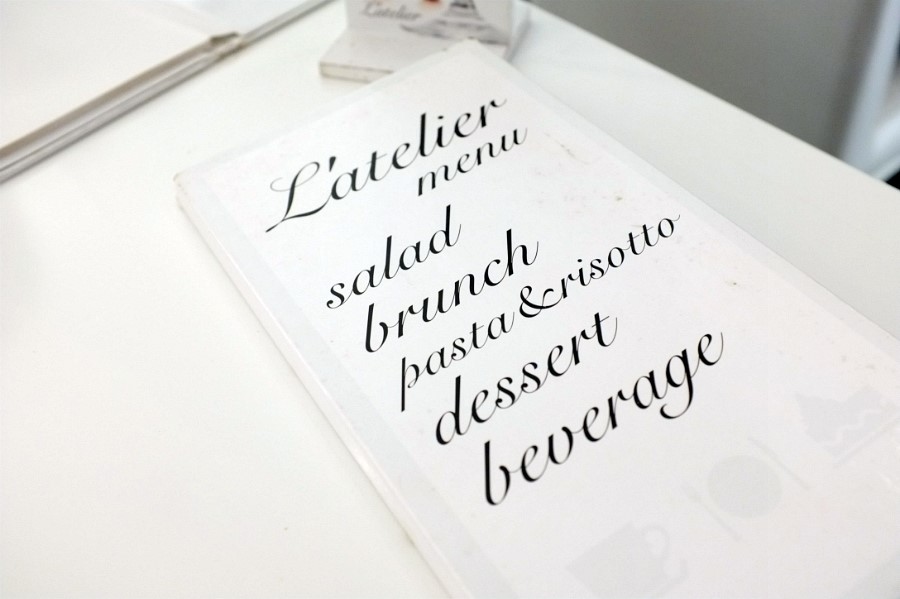 L'atelier
L'atelier
menu
salad
brunch
pasta & risotto
dessert
beverage